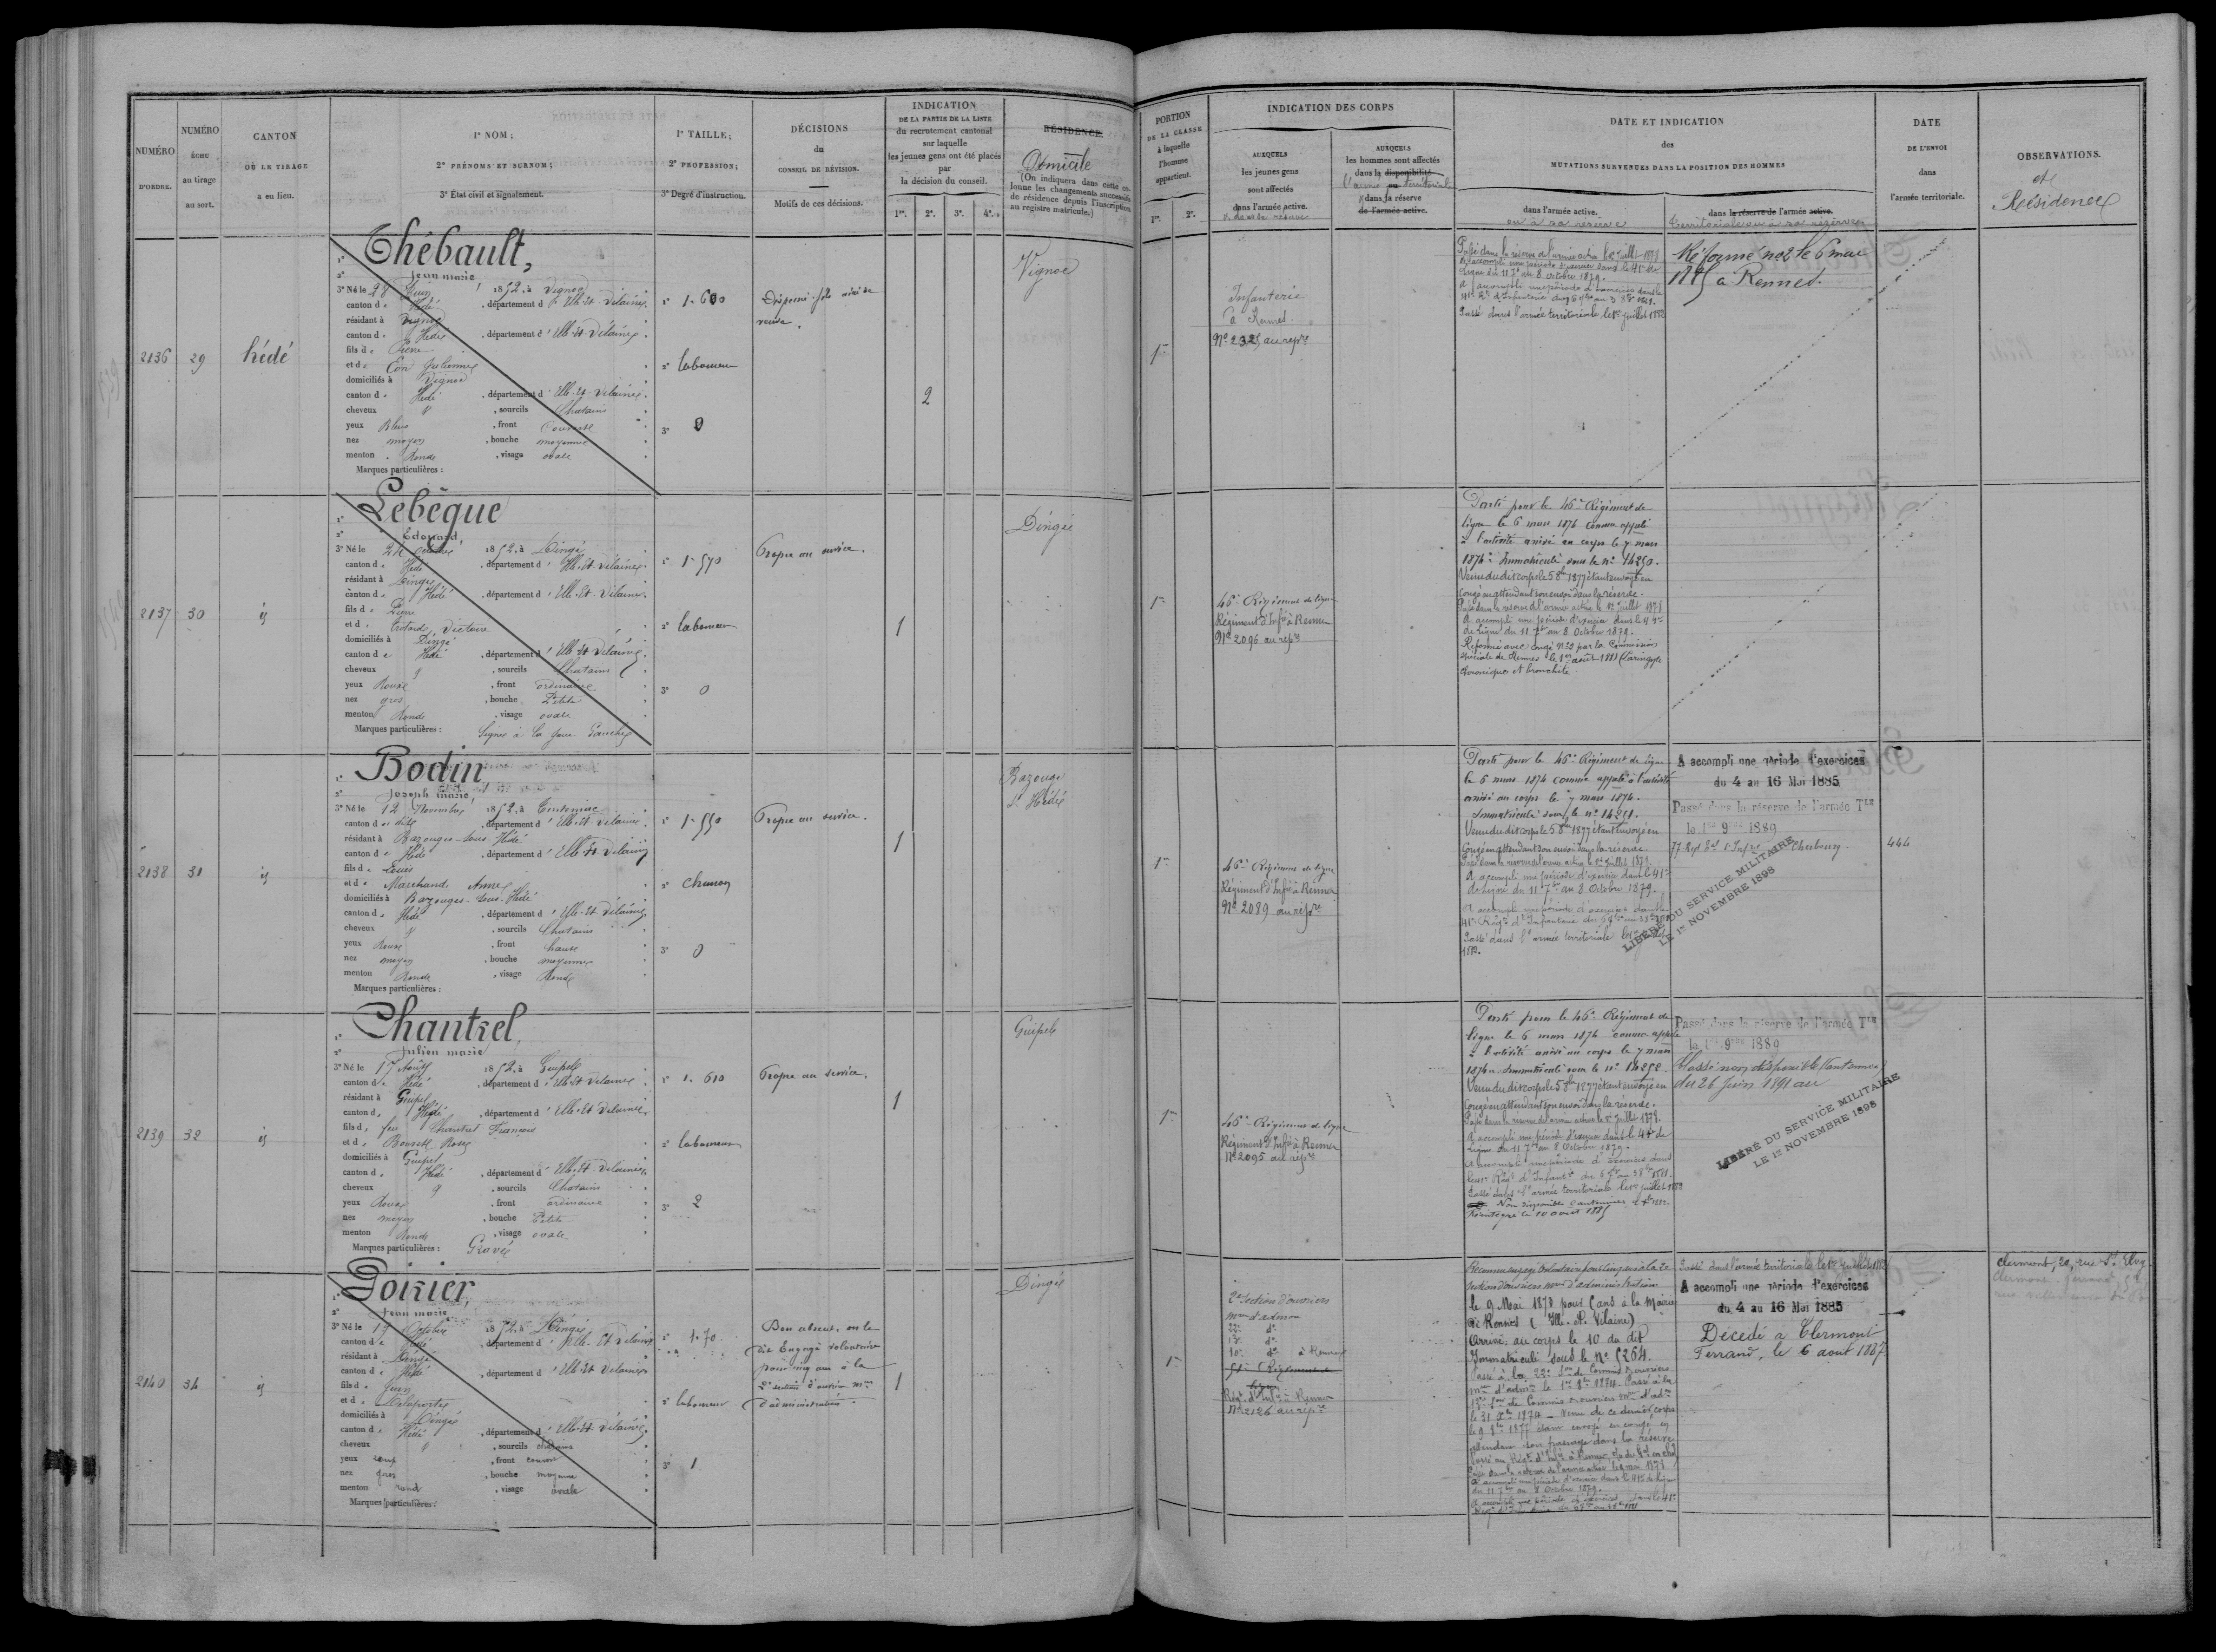 NUMÉRO
D'ORDRE.
NUMÉRO
ÉCHU
au tirage
au sort.
CANTON
OÙ LE TIRAGE
a eu lieu.
1° NOM;
2° PRÉNOMS ET SURNOM;
3° État civil et signalement.
1° TAILLE;
2° PROFESSION;
3° Degré d'instruction.
DÉCISIONS
du
CONSEIL DE RÉVISION.
Motifs de ces décisions.
INDICATION
DE LA PARTIE DE LA LISTE
du recrutement cantonal
sur laquelle
les jeunes gens ont été placés
par
la décision du conseil.
1re. 2e. 3e. 4e.
RÉSIDENCE.
Domicile
(On indiquera dans cette co-
lonne les changements successifs
de résidence depuis l'inscription
au registre matricule.)
PORTION
DE LA CLASSE
à laquelle
l'homme
appartient.
1re. 2e.
INDICATION DES CORPS
AUXQUELS
les jeunes gens
sont affectés
dans l'armée active.
& dans la réserve
AUXQUELS
les hommes sont affectés
dans la disponibilité
l'armée ou territoriale
& dans sa réserve
de l'armée active.
DATE ET INDICATION
des
MUTATIONS SURVENUES DANS LA POSITION DES HOMMES
dans l'armée active.
ou à sa réserve
dans la réserve de l'armée active.
territoriale ou à sa réserve
DATE
DE L'ENVOI
dans
l'armée territoriale.
OBSERVATIONS.
et
Résidence
2136
29
hédé
1° Thébault,
2° Jean marie,
3° Né le 28 Juin 1852, à Vignoc
canton de Hédé, département d'Ille-et-Vilaine.
résidant à Vignoc
canton de Hédé, département d'Ille-et-Vilaine.
fils de Pierre
et de Julienne
domiciliés à Vignoc
canton de Hédé, département d'Ille-et-Vilaine.
cheveux & , sourcils Chatains
yeux Bleus, front Couvert
nez moyen, bouche moyenne
menton Rond, visage ovale
Marques particulières :
1° 1-600
2° laboureur
3° 0
Dispensé fils aîné de
veuve.
2
Vignoc
1re
Infanterie
à Rennes.
N° 2325 au repre
Passé dans la réserve de l'armée active le 1er Juillet 1878
A accompli une période d'exercice dans le 41e de
Ligne du 11 7bre au 8 Octobre 1879.
A accompli une période d'exercices dans le
41e Rt d'Infanterie du 5 7bre au 3 8bre 1881.
Passé dans l'armée territoriale le 1er Juillet 1882
Réformé n° 2 le 6 mai
1885 à Rennes.
2137
30
id
1° Lebêque
2° Edouard,
3° Né le 24 octobre 1852, à Dingé
canton de Hédé, département d'Ille-et-Vilaine.
résidant à Dingé
canton de Hédé, département d'Ille-et-Vilaine
fils de Pierre
et de Victoire
domiciliés à Dingé
canton de Hédé, département d'Ille-et-Vilaine.
cheveux & , sourcils Chatains
yeux Roux, front ordinaire
nez gros, bouche Petite
menton Rond, visage ovale
Marques particulières : Signe à la joue Gauche
1° 1-570
2° laboureur
3° 0
Propre au service.
1
Dingé
1re
46e Régiment de ligne
Régiment d'Infie à Rennes
N° 2096 au repre
Parti pour le 46e Régiment de
ligne le 6 mars 1874 comme appelé
à l'activité arrivé au corps le 7 mars
1874. Immatriculé sous le n° 14250.
Venu du dit corps le 5 8bre 1877 étant envoyé en
congé en attendant son envoi dans la réserve.
Passé dans la réserve de l'armée active le 1er Juillet 1878
A accompli une période d'exercice dans le 41e
de Ligne du 11 7bre au 8 Octobre 1879.
Réformé avec congé N° 2 par la Commission
spéciale de Rennes le 1er août 1881 (Laryngyte
chronique et bronchite.
2138
31
id
1° Bodin,
2° Joseph Marie,
3° Né le 12 Novembre 1852, à Tinténiac
canton de dit, département d'Ille-et-Vilaine.
résidant à Bazouges-sous-Hédé
canton de Hédé, département d'Ille-et-Vilaine
fils de Louis
et de Marchand Anne
domiciliés à Bazouges-sous-Hédé
canton de Hédé, département d'Ille-et-Vilaine.
cheveux & , sourcils Chatains
yeux Roux, front haut
nez moyen, bouche moyenne
menton Rond, visage Rond
Marques particulières :
1° 1-550
2°
3° 0
Propre au service.
1
Bazouge
s. Hédé
1re
46e Régiment de ligne
Régiment d'Infie à Rennes
N° 2089 au repre
Parti pour le 46e Régiment de ligne
le 6 mars 1874 comme appelé à l'activité
arrivé au corps le 7 mars 1874.
Immatriculé sous le n° 14251.
Venu du dit corps le 5 8bre 1877 étant envoyé en
Congé en attendant son envoi dans la réserve.
Passé dans la réserve de l'armée active le 1er Juillet 1878.
A accompli une période d'exercice dans le 41e
de Ligne du 11 7bre au 8 Octobre 1879.
A accompli une période d'exercices dans le
41e Régt d'Infanterie du
Passé dans l'armée territoriale le 1er Juillet
1882.
A accompli une période d'exercices
du 4 au 16 Mai 1885
Passé dans la réserve de l'armée Tle
le 1er 9bre 1889
77 Rgt Tal d'Infrie Cherbourg.
LIBÉRÉ DU SERVICE MILITAIRE
LE 1er NOVEMBRE 1898
444
2139
32
id
1° Chantrel,
2° Julien marie
3° Né le 17 Août 1852, à Guipel
canton de Hédé, département d'Ille-et-Vilaine
résidant à Guipel
canton de Hédé, département d'Ille-et-Vilaine
fils de feu Chantrel François
et de Rose
domiciliés à Guipel
canton de Hédé, département d'Ille-et-Vilaine
cheveux & , sourcils Chatains
yeux Roux, front ordinaire
nez moyen, bouche Petite
menton Rond, visage ovale
Marques particulières : Gravé
1° 1-610
2° laboureur
3° 2
Propre au service.
1
Guipel
1re
46e Régiment de ligne
Régiment d'Infie à Rennes
N° 2095 au repre
Parti pour le 46e Régiment de
ligne le 6 mars 1874 comme appelé
à l'activité arrivé au corps le 7 mars
1874. Immatriculé sous le n° 14252.
Venu du dit corps le 5 8bre 1877 étant envoyé en
Congé en attendant son envoi dans la réserve.
Passé dans la réserve de l'armée active le 1er Juillet 1878.
A accompli une période d'exercice dans le 41e de
Ligne du 11 7bre au 8 Octobre 1879.
A accompli une période d'exercices dans
le 41e Régt d'Infante du 5 7bre au 3 8bre 1881.
Passé dans l'armée territoriale le 1er Juillet 1882
Non disponible
Réintégré le 10 août 1885
Passé dans la réserve de l'armée Tle
le 1er 9bre 1889
Classé non disponible
du 26 Juin 1891 au
LIBÉRÉ DU SERVICE MILITAIRE
LE 1er NOVEMBRE 1898
2140
34
id
1° Poirier,
2° Jean marie
3° Né le 19 Octobre 1852, à Dingé
canton de Hédé, département d'Ille-et-Vilaine
résidant à Dingé
canton de Hédé, département d'Ille-et-Vilaine
fils de Jean
et de Delaporte
domiciliés à Dingé
canton de Hédé, département d'Ille-et-Vilaine.
cheveux & , sourcils chatains
yeux roux, front couvert
nez gros, bouche moyenne
menton rond, visage ovale
Marques particulières :
1° 1-70
2° laboureur
3° 1
Bon absent, on le
dit Engagé volontaire
pour cinq ans à la
2e section d'ouvriers mres
d'administration.
1
Dingé
1re
2e Section d'ouvriers
mres d'admon
22e do
13e do
10e do à Rennes
Régt d'Infie à Rennes
N° 2126 au repre
le 9 Mai 1873 pour 5 ans à la Mairie
de Rennes (Ille-et-Vilaine)
Arrivé au corps le 10 du dit
Immatriculé sous le N° 5264.
Passé à la 22e Son de Commis ouvriers
Passé à la
13e Son de Commis ouvriers mres d'adon
Venu de ce dernier corps
étant envoyé en congé en
attendant son passage dans la réserve.
A accompli une période d'exercice dans le 41e de Ligne
du 11 7bre au 8 Octobre 1879.
A accompli une période d'exercices dans le 41e
Passé dans l'armée territoriale le 1er Juillet 1882
A accompli une période d'exercices
du 4 au 16 Mai 1885
Décédé à Clermont
Ferrand, le 6 août 1887
Clermont, 20, rue St Eloy